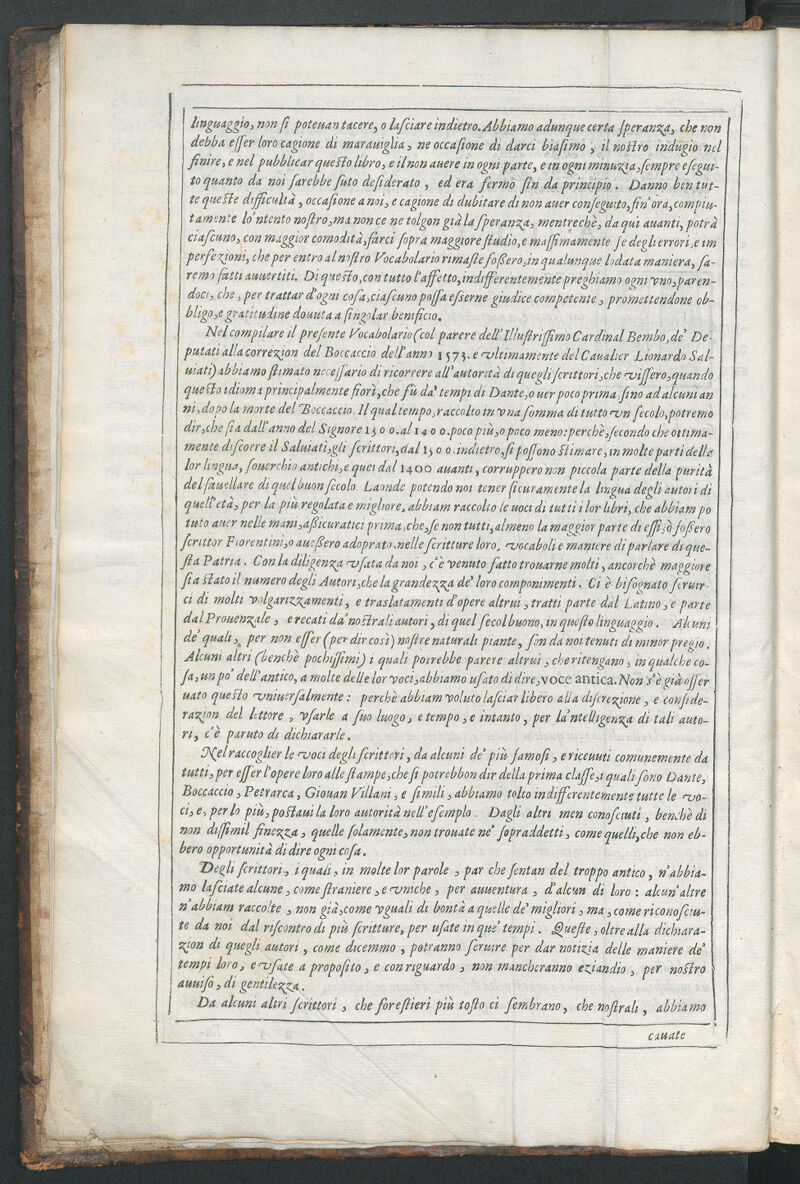 linguaggio, non ſi poteuan tacere, o laſciare indietro. Abbiamo adunque certa ſperanza, che non
debba eſſer loro cagione di marauiglia, ne occaſione di darci biaſimo, il noſtro indugio nel
finire, e nel pubblicar queſto libro, e il non auere in ogni parte, e in ogni minuzia, ſempre eſegui-
to quanto da noi ſarebbe ſuto deſiderato, ed era fermo ſin da principio. Danno ben tut-
te queſte difficultà, occaſione a noi, e cagione di dubitare di non auer conſeguito, fin'ora, compiu-
tamente lo'ntento noſtro, ma non ce ne tolgon già la ſperanza, mentrechè, da qui auanti, potrà
ciaſcuno, con maggior comodità, farci ſopra maggiore ſtudio, e maſſimamente ſe degli errori, e im
perfezioni, che per entro al noſtro Vocabolario rimaſte foſſero, in qualunque lodata maniera, ſa-
remo fatti auuertiti. Di queſto, con tutto l'affetto, indifferentemente preghiamo ogni vno, paren-
doci, che, per trattar d'ogni coſa, ciaſcuno poſſa eſſerne giudice competente, promettendone ob-
bligo, e gratitudine douuta a ſingolar benificio.
Nel compilare il preſente Vocabolario (col parere dell'Illuſtriſſimo Cardinal Bembo, de' De-
putati alla correzion del Boccaccio dell'anno 1573. e vltimamente del Caualier Lionardo Sal-
uiati) abbiamo ſtimato neceſſario di ricorrere all'autorità di quegli ſcrittori, che viſſero, quando
queſto idioma principalmente fiorì, che fù da' tempi di Dante, o uer poco prima, ſino ad alcuni an
ni, dopo la morte del Boccaccio. Il qual tempo, raccolto in vna ſomma di tutto vn ſecolo, potremo
dir, che ſia dall'anno del Signore 1300. al 1400. poco più, o poco meno: perchè, ſecondo che ottima-
mente diſcorre il Saluiati, gli ſcrittori, dal 1300. indietro, ſi poſſono ſtimare, in molte parti della
lor lingua, ſouerchio antichi, e quei dal 1400 auanti, corruppero non piccola parte della purità
del fauellare di quel buon ſecolo. Laonde potendo noi tener ſicuramente la lingua degli autori di
quell'età, per la più regolata e migliore, abbiam raccolto le uoci di tutti i lor libri, che abbiam po
tuto auer nelle mani, aſſicuratici prima, che, ſe non tutti, almeno la maggior parte di eſſi, ò foſſero
ſcrittor Fiorentini, o aueſſero adoprato, nelle ſcritture loro, vocaboli e maniere di parlare di que-
ſta Patria. Con la diligenza vſata da noi, c'è venuto fatto trouarne molti, ancorchè maggiore
ſia ſtato il numero degli Autori, che la grandezza de' loro componimenti. Ci è biſognato ſeruir-
ci di molti volgarizzamenti, e traslatamenti d'opere altrui, tratti parte dal Latino, e parte
dal Prouenzale, e recati da' noſtrali autori, di quel ſecol buono, in queſto linguaggio. Alcuni
de' quali, per non eſſer (per dir così) noſtre naturali piante, ſon da noi tenuti di minor pregio.
Alcuni altri (benchè pochiſſimi) i quali potrebbe parere altrui, che ritengano, in qualche co-
ſa, un po' dell'antico, a molte delle lor voci, abbiamo uſato di dire, voce antica. Non s'è già oſſer
uato queſto vniuerſalmente: perchè abbiam voluto laſciar libero alla diſcrezione, e conſide-
razion del lettore, vſarle a ſuo luogo, e tempo, e intanto, per la'ntelligenza di tali auto-
ri, c'è paruto di dichiararle.
Nel raccoglier le voci degli ſcrittori, da alcuni de' più famoſi, e riceuuti comunemente da
tutti, per eſſer l'opere loro alle ſtampe, che ſi potrebbon dir della prima claſſe, i quali ſono Dante,
Boccaccio, Petrarca, Giouan Villani, e ſimili, abbiamo tolto indifferentemente tutte le vo-
ci, e, per lo più, poſtaui la loro autorità nell'eſemplo. Dagli altri men conoſciuti, benchè di
non diſſimil finezza, quelle ſolamente, non trouate ne' ſopraddetti, come quelli, che non eb-
bero opportunità di dire ogni coſa.
Degli ſcrittori, i quali, in molte lor parole, par che ſentan del troppo antico, n'abbia-
mo laſciate alcune, come ſtraniere, e vniche, per auuentura, d'alcun di loro: alcun'altre
n'abbiam raccolte, non già, come vguali di bontà a quelle de' migliori, ma, come riconoſciu-
te da noi dal riſcontro di più ſcritture, per uſate in que' tempi. Queſte, oltre alla dichiara-
zion di quegli autori, come dicemmo, potranno ſeruire per dar notizia delle maniere de'
tempi loro, e vſate a propoſito, e con riguardo, non mancheranno eziandio, per noſtro
auuiſo, di gentilezza.
Da alcuni altri ſcrittori, che foreſtieri più toſto ci ſembrano, che noſtrali, abbiamo
cauate